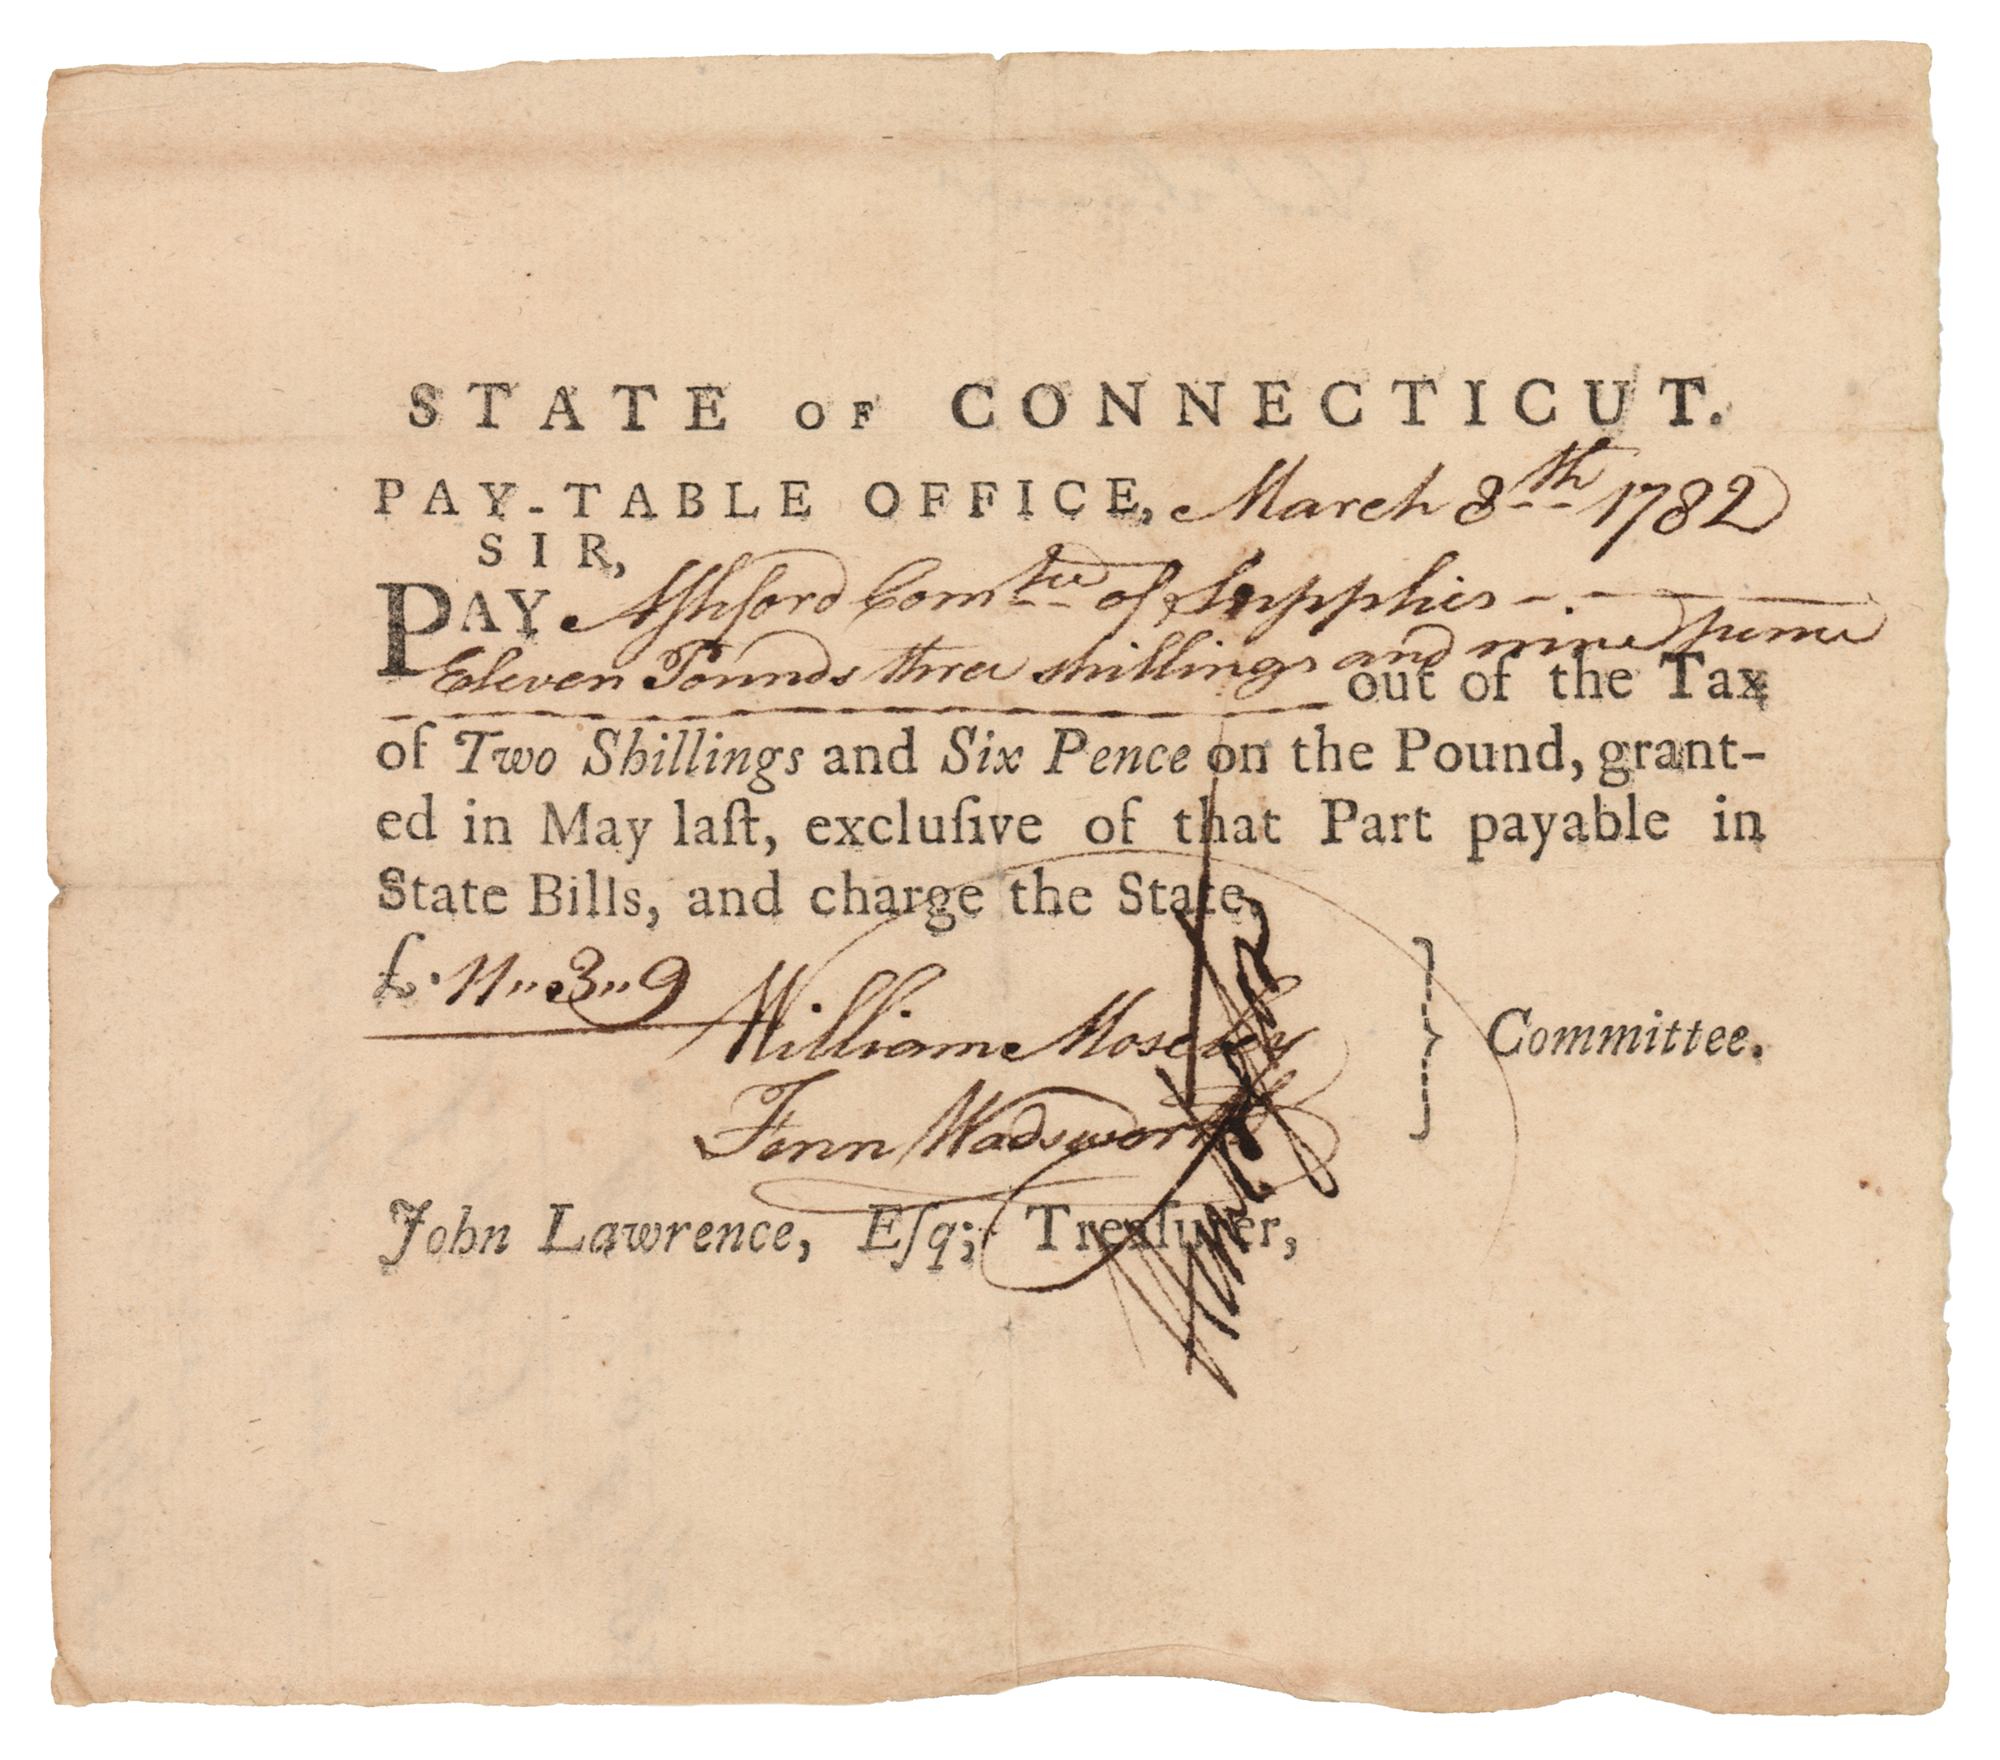 STATE OF CONNECTICUT.
PAY-TABLE OFFICE, March 8th 1782
SIR,
PAY Aſhford Comtee of Supplies
Eleven Pounds three shillings and nine pence
out of the Tax
of Two Shillings and Six Pence on the Pound, grant-
ed in May laſt, excluſive of that Part payable in
State Bills, and charge the State.
£. 11,,3,,9
William Moseley
Fenn Wadsworth
Committee.
John Lawrence, Eſq; Treaſurer,